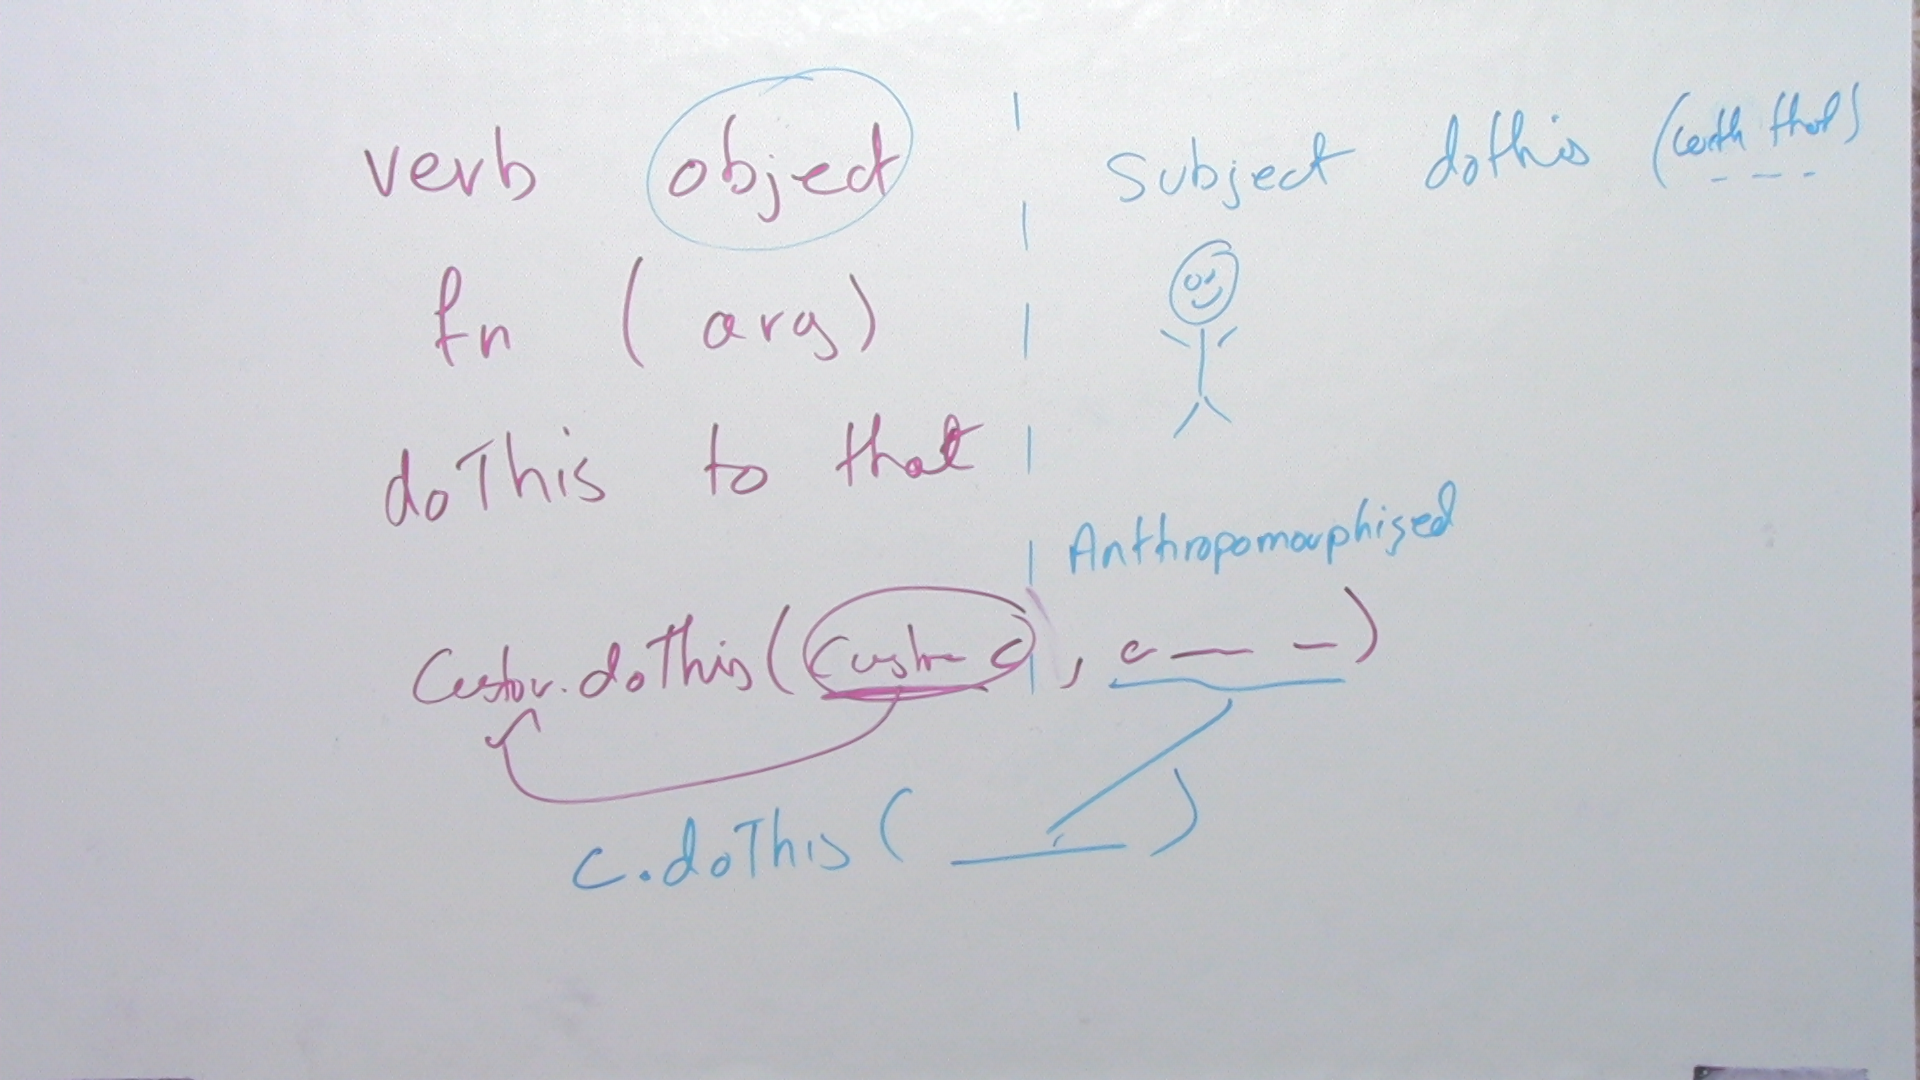 verb object
fn ( arg )
doThis to that
Subject dothis (with that)
Anthropomorphized
Custor.doThis( Custm c , a )
c.doThis( )